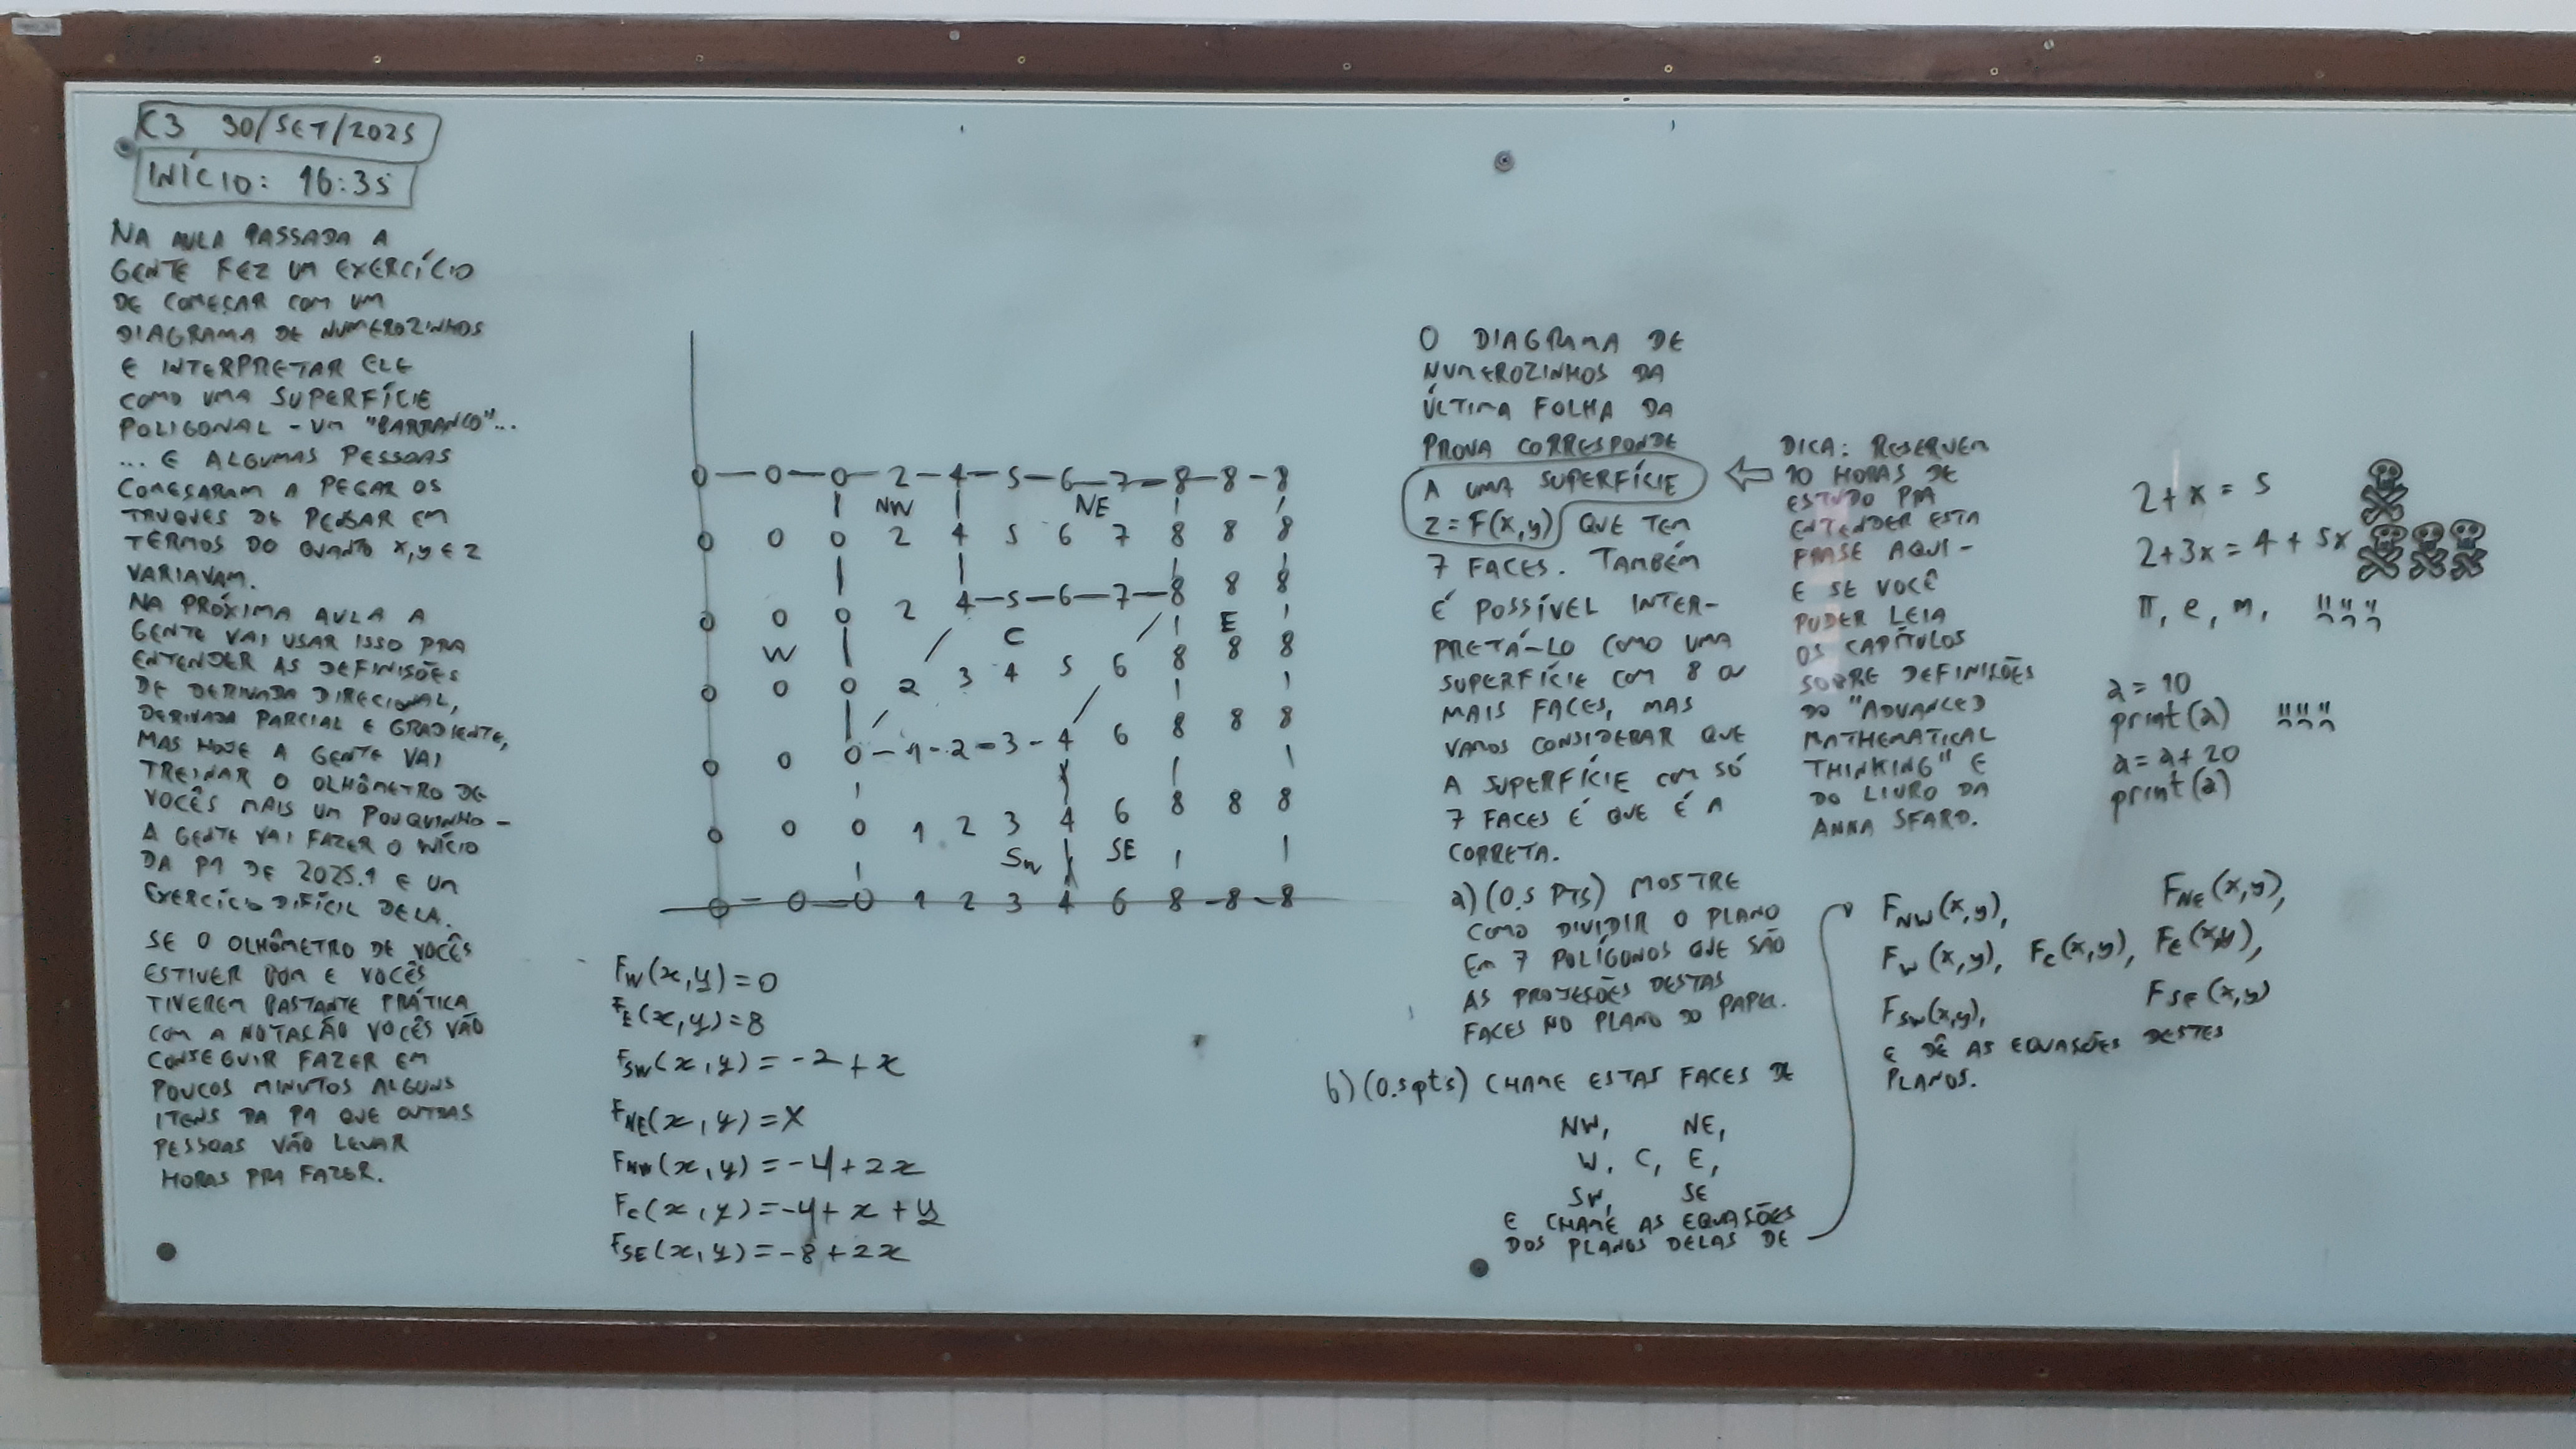 C3 30/SET/2025
INÍCIO: 16:35
NA AULA PASSADA A
GENTE FEZ UM EXERCÍCIO
DE COMEÇAR COM UM
DIAGRAMA DE NUMEROZINHOS
E INTERPRETAR ELE
COMO UMA SUPERFÍCIE
POLIGONAL - UM "BARRANCO"...
... E ALGUMAS PESSOAS
COMEÇARAM A PEGAR OS
TRUQUES DE PENSAR EM
TERMOS DO QUANTO X, Y E Z
VARIAVAM.
NA PRÓXIMA AULA A
GENTE VAI USAR ISSO PRA
ENTENDER AS DEFINIÇÕES
DE DERIVADA DIRECIONAL,
DERIVADA PARCIAL E GRADIENTE,
MAS HOJE A GENTE VAI
TREINAR O OLHÔMETRO DE
VOCÊS MAIS UM POUQUINHO -
A GENTE VAI FAZER O INÍCIO
DA P1 DE 2025.1 E UM
EXERCÍCIO DIFÍCIL DELA.
SE O OLHÔMETRO DE VOCÊS
ESTIVER BOM E VOCÊS
TIVEREM BASTANTE PRÁTICA
COM A NOTAÇÃO VOCÊS VÃO
CONSEGUIR FAZER EM
POUCOS MINUTOS ALGUNS
ITENS DA P1 QUE OUTRAS
PESSOAS VÃO LEVAR
HORAS PRA FAZER.
0 — 0 — 0 — 2 — 4 — 5 — 6 — 7 — 8 — 8 — 8
NW NE
0 0 0 2 4 5 6 7 8 8 8
0 0 0 2 4 — 5 — 6 — 7 — 8 8 8
W C E
0 0 0 2 3 4 5 6 8 8 8
0 0 0 - 1 - 2 - 3 - 4 6 8 8 8
0 0 0 1 2 3 4 6 8 8 8
SW SE
0 — 0 — 0 1 2 3 4 6 8 — 8 — 8
F_W(x,y)=0
F_E(x,y)=8
F_SW(x,y)=-2+x
F_NE(x,y)=X
F_NW(x,y)=-4+2x
F_C(x,y)=-4+x+y
F_SE(x,y)=-8+2x
O DIAGRAMA DE
NUMEROZINHOS DA
ÚLTIMA FOLHA DA
PROVA CORRESPONDE
A UMA SUPERFÍCIE
Z=F(X,Y) QUE TEM
7 FACES. TAMBÉM
É POSSÍVEL INTER-
PRETÁ-LO COMO UMA
SUPERFÍCIE COM 8 OU
MAIS FACES, MAS
VAMOS CONSIDERAR QUE
A SUPERFÍCIE COM SÓ
7 FACES É QUE É A
CORRETA.
a) (0.5 PTS) MOSTRE
COMO DIVIDIR O PLANO
EM 7 POLÍGONOS QUE SÃO
AS PROJEÇÕES DESTAS
FACES NO PLANO DO PAPEL.
b) (0.5pts) CHAME ESTAS FACES DE
NW, NE,
W, C, E,
SW, SE
E CHAME AS EQUAÇÕES
DOS PLANOS DELAS DE
F_NW(x,y), F_NE(x,y),
F_W(x,y), F_C(x,y), F_E(x,y),
F_SW(x,y), F_SE(x,y)
E DÊ AS EQUAÇÕES DESTES
PLANOS.
DICA: RESERVEM
10 HORAS DE
ESTUDO PRA
ENTENDER ESTA
FRASE AQUI -
E SE VOCÊ
PUDER LEIA
OS CAPÍTULOS
SOBRE DEFINIÇÕES
DO "ADVANCED
MATHEMATICAL
THINKING" E
DO LIVRO DA
ANNA SFARD.
2+x=5
2+3x=4+5x
π, e, m,
a=10
print(a)
a=a+20
print(a)